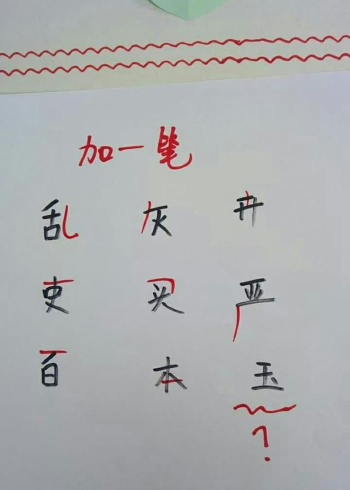 加一笔
乱 灰 丹
吏 买 严
百 本 玉
?